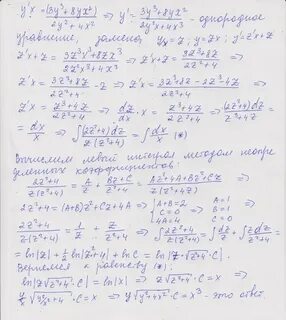 y'x = (3y³+8yx²)/(2y²+4x²) ⇒ y' = (3y³+8yx²)/(2y²x+4x³) - однородное
уравнение, замена y/x = z; y = zx; y' = z'x+z
z'x+z = (3z³x³+8zx³)/(2z²x³+4x³) ⇒ z'x+z = (3z³+8z)/(2z²+4)
z'x = (3z³+8z)/(2z²+4) - z ⇒ z'x = (3z³+8z-2z³-4z)/(2z²+4)
z'x = (z³+4z)/(2z²+4) ⇒ dz/dx · x = (z³+4z)/(2z²+4) ⇒ (2z²+4)dz/(z³+4z) =
= dx/x ⇒ ∫(2z²+4)dz/(z(z²+4)) = ∫dx/x (*)
Вычислим левый интеграл методом неопре
деленных коэффициентов:
(2z²+4)/(z(z²+4)) = A/z + (Bz+C)/(z²+4) = (Az²+4A+Bz²+Cz)/(z(z²+4))
2z²+4 = (A+B)z²+Cz+4A ⇒ {A+B=2 C=0 4A=4 ⇒ A=1 B=1 C=0
(2z²+4)/(z(z²+4)) = 1/z + z/(z²+4) ⇒ ∫(2z²+4)dz/(z(z²+4)) = ∫dz/z + ∫z dz/(z²+4) =
= ln|z| + ½ ln|z²+4| + ln C = ln|z·√(z²+4)·C|
Вернемся к равенству (*):
ln|z√(z²+4)·C| = ln|x| ⇒ z√(z²+4)·C = x ⇒
y/x √(y²/x²+4)·C = x ⇒ y√(y²+4x²)·C = x³ - это ответ.